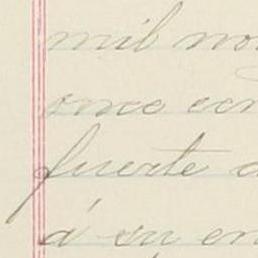 mil no
once cen
fuerte a
á su en